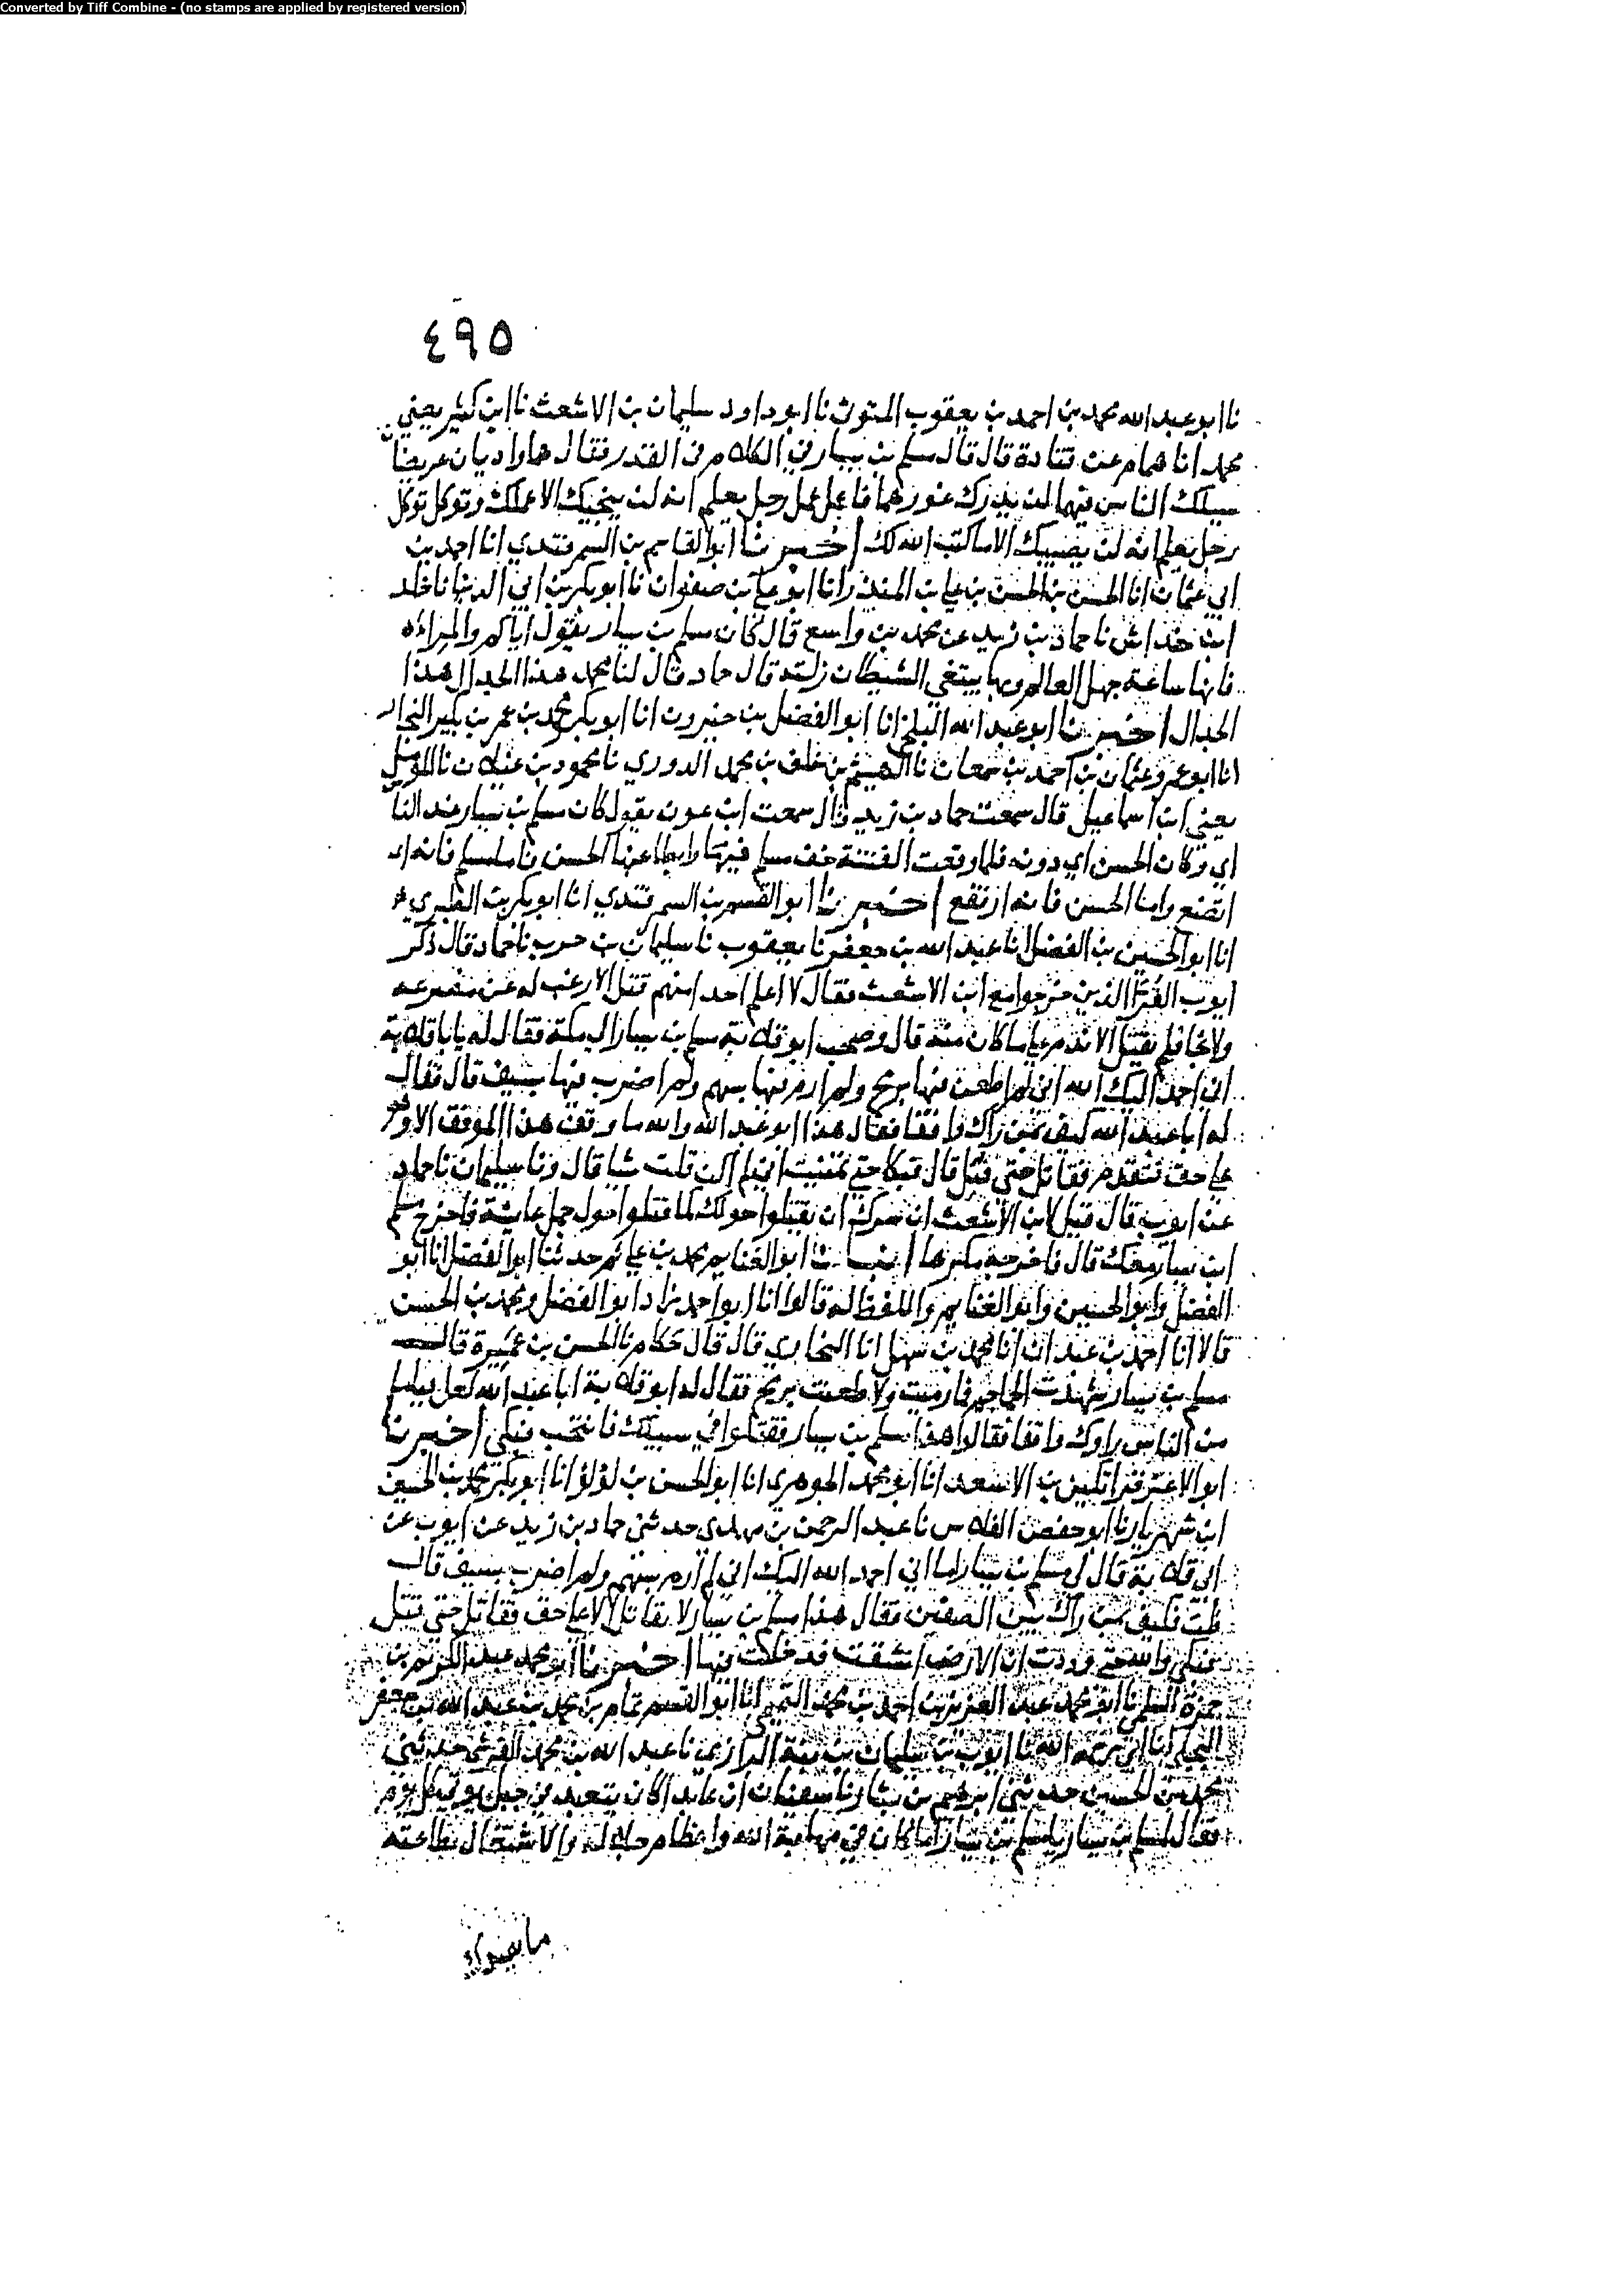 Converted by Tiff Combine - (no stamps are applied by registered version)
٤٩٥
نا ابو عبد الله محمد بن احمد بن يعقوب المتوثي نا ابو داود سليمان بن الاشعث نا ابن كثير يعني
محمد انا همام عن قتادة قال قال مسلم بن يسار في الكلام في القدر فقال هما واديان عريضان
يسلك الناس فيهما لن يدرك غورهما فاعمل عمل رجل يعلم انه لن ينجيك الا عملك وتوكل توكل
رجل يعلم انه لن يصيبك الا ما كتب الله لك اخبرنا ابو القاسم بن السمرقندي انا احمد بن
ابي عثمان انا الحسن بن الحسن بن علي بن المنذر انا ابو علي بن صفوان نا ابو بكر بن ابي الدنيا نا خلد
ابن خداش نا حماد بن زيد عن محمد بن واسع قال كان مسلم بن يسار يقول اياكم والمراءاه
فانها ساعة جهل العالم وبها يبتغي الشيطان زلته قال حماد قال لنا محمد هذا الجدال هذا
الجدال اخبرنا ابو عبد الله البلخي انا ابو الفضل بن خيرون انا ابو بكر محمد بن عمر بن بكير النجار
انا ابو عمرو عثمان بن احمد بن سمعان نا الهيثم بن خلف بن محمد الدوري نا محمود بن غيلان نا المومل
يعني ابن اسماعيل قال سمعت حماد بن زيد قال سمعت ابن عون يقول كان مسلم بن يسار عند الناس
اي وكان الحسن اي دونه فلما وقعت الفتنة خف مسلم فيها وابطا عنها الحسن فاما مسلم فانه
اتضع واما الحسن فانه ارتفع اخبرنا ابو القسم بن السمرقندي انا ابو بكر بن الطبري
انا ابو الحسين بن الفضل انا عبد الله بن جعفر نا يعقوب نا سليمان بن حرب نا حماد قال ذكر
ايوب القرا الذين خرجوا مع ابن الاشعث فقال لا اعلم احدا منهم قتل الا رغب له عن مصرعه
ولا نجا فلم يقتل الا ندم على ما كان منه قال وصحب ابو قلابة مسلم بن يسار الى مكة فقال له يا با قلابة
اني احمد اليك الله اني لم اطعن فيها برمح ولم ارم فيها بسهم ولم اضرب فيها بسيف قال فقال
له ابا عبد الله كيف بمن راك واقفا فقال هذا ابو عبد الله والله ما وقف هذا الموقف الا وهو
على حق فتقدم فقاتل حتى قتل قال فبكا حتى تمنيت اني لم اكن قلت شيا قال ونا سليمان نا حماد
عن ايوب قال قيل لابن الاشعث ان سرك ان يقتلوا حولك كما قتلوا حول جمل عايشة فاخرج مسلم
ابن يسار معك قال فاخرجه مكرها انبانا ابو الغنايم محمد بن علي ثم حدثنا ابو الفضل انا ابو
الفضل وابو الحسين وابو الغنايم واللفظ له قالوا انا ابو احمد زاد ابو الفضل ومحمد بن الحسن
قالا انا احمد بن عبدان انا محمد بن سهل انا البخاري قال قال حكام نا الحسن بن عميرة قال
مسلم بن يسار شهدت الجماجم فما رميت ولا طعنت برمح فقال له ابو قلابة ابا عبد الله لعل
من الناس راوك واقفا فقالوا هذا مسلم بن يسار فقتلوا في سببك فانتحب فبكى اخبرنا
ابو الاعز قراتكين بن الاسعد انا ابو محمد الجوهري انا ابو الحسن بن لؤلؤ انا ابو بكر محمد بن الحسين
ابن شهريار نا ابو حفص الفلاس نا عبد الرحمن بن مهدي حدثني حماد بن زيد عن ايوب عن
ابي قلابة قال لي مسلم بن يسار اما اني احمد الله اليك اني لم ارم بسهم ولم اضرب بسيف قال
قلت فكيف بمن راك بين الصفين فقال هذا مسلم بن يسار لا يقاتل الا على حق فقاتل حتى قتل
فبكى والله حتى وددت ان الارض انشقت فدخلت فيها اخبرنا ابو محمد عبد الكريم بن
حمزة السلمي نا ابو محمد عبد العزيز بن احمد بن محمد التميمي انا ابو القسم تمام بن محمد بن عبد الله بن جعفر
البجلي انا ابي رحمه الله نا ايوب بن سليمان بن الرازي نا عبد الله بن محمد القرشي حدثني
محمد بن الحسين حدثني ابرهيم بن بشار نا سفيان ان عابدا كان يتعبد في جبل كل يوم
فقال لمسلم بن يسار يا مسلم بن يسار اما كان في مهابة الله واعظام جلاله والاشتغال بطاعته